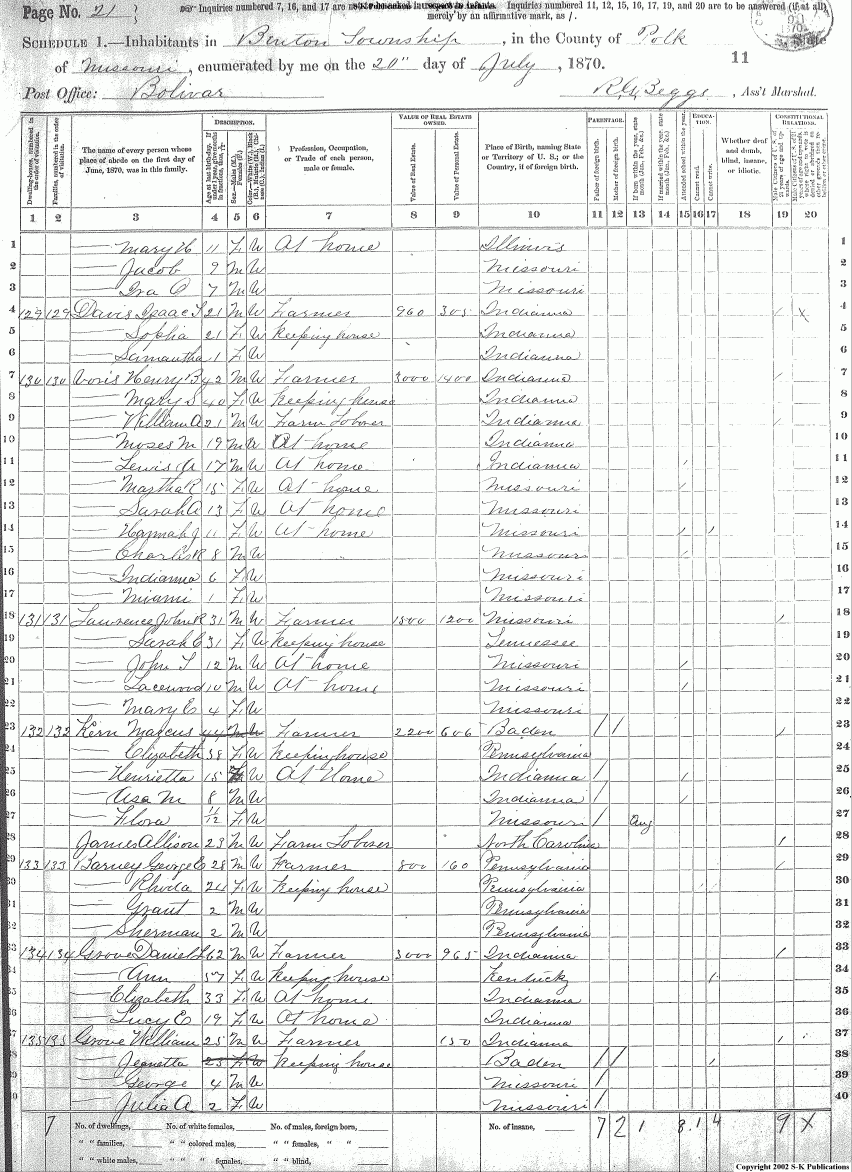 Page No. 21
Inquiries numbered 7, 16, and 17 are not to be asked in respect to infants. Inquiries numbered 11, 12, 15, 16, 17, 19, and 20 are to be answered (if at all)
merely by an affirmative mark, as /.
SCHEDULE 1.—Inhabitants in Benton Township, in the County of Polk, State
of Missouri, enumerated by me on the 20" day of July, 1870.
11
Post Office: Bolivar
Beggs, Ass't Marshal.
Dwelling-houses, numbered in the order of visitation.
Families, numbered in the order of visitation.
The name of every person whose place of abode on the first day of June, 1870, was in this family.
DESCRIPTION.
Profession, Occupation, or Trade of each person, male or female.
VALUE OF REAL ESTATE OWNED.
Value of Real Estate.
Value of Personal Estate.
Place of Birth, naming State or Territory of U. S.; or the Country, if of foreign birth.
PARENTAGE.
Father of foreign birth.
Mother of foreign birth.
Attended school within the year.
EDUCATION.
Cannot read.
Cannot write.
Whether deaf and dumb, blind, insane, or idiotic.
CONSTITUTIONAL RELATIONS.
1 2 3 4 5 6 7 8 9 10 11 12 13 14 15 16 17 18 19 20
1 —— Mary H 11 F W At home Illinois 1
2 —— Jacob 9 M W Missouri 2
3 —— Ira O 7 M W Missouri 3
4 129 129 Davis Isaac T 21 M W Farmer 960 305 Indianna / X 4
5 —— Sophia 21 F W Keeping house Indianna 5
6 —— Samantha 1 F W Indianna 6
7 130 130 Voris Henry B 42 M W Farmer 3000 1400 Indianna / 7
8 —— Mary S 40 F W Keeping house Indianna 8
9 —— William A 21 M W Farm Laborer Indianna / 9
10 —— Moses M 19 M W At home Indianna 10
11 —— Lewis A 17 M W At home Indianna / 11
12 —— Martha R 15 F W At home Missouri / 12
13 —— Sarah A 13 F W At home Missouri 13
14 —— Hannah J 11 F W At home Missouri / / 14
15 —— Charles R 8 M W Missouri / 15
16 —— Indianna 6 F W Missouri 16
17 —— Miami 1 F W Missouri 17
18 131 131 Lawrence John R 31 M W Farmer 1500 1200 Missouri / 18
19 —— Sarah C 31 F W Keeping house Tennessee 19
20 —— John T 12 M W At home Missouri / 20
21 —— Lacewood 10 M W At home Missouri / 21
22 —— Mary E 4 F W Missouri 22
23 132 132 Kern Marcus 44 M W Farmer 2200 606 Baden / / / 23
24 —— Elizabeth 38 F W Keeping house Pennsylvania 24
25 —— Henrietta 15 F W At Home Indianna / / 25
26 —— Asa M 8 M W Indianna / / 26
27 —— Flora 11/12 F W Missouri / Aug 27
28 James Allison 23 M W Farm Laborer North Carolina / 28
29 133 133 Barney George E 28 M W Farmer 800 160 Pennsylvania / 29
30 —— Rhoda 24 F W Keeping house Pennsylvania / / 30
31 —— Grant 2 M W Pennsylvania 31
32 —— Sherman 2 M W Pennsylvania 32
33 134 134 Grove Daniel L 62 M W Farmer 3000 965 Indianna / 33
34 —— Ann 57 F W Keeping house Kentucky / 34
35 —— Elizabeth 33 F W At home Indianna 35
36 —— Lucy E 19 F W At home Indianna 36
37 135 135 Grove William 25 M W Farmer 150 Indianna / 37
38 —— Jeanetta 25 F W Keeping house Baden / / / 38
39 —— George 4 M W Missouri / 39
40 —— Julia A 2 F W Missouri / 40
7 No. of dwellings, No. of white females, No. of males, foreign born, No. of insane, 7 2 1 8 1 4 9 X
" " families, " " colored males, " " females, " "
" " white males, " " " females, " " blind,
Copyright 2002 S-K Publications